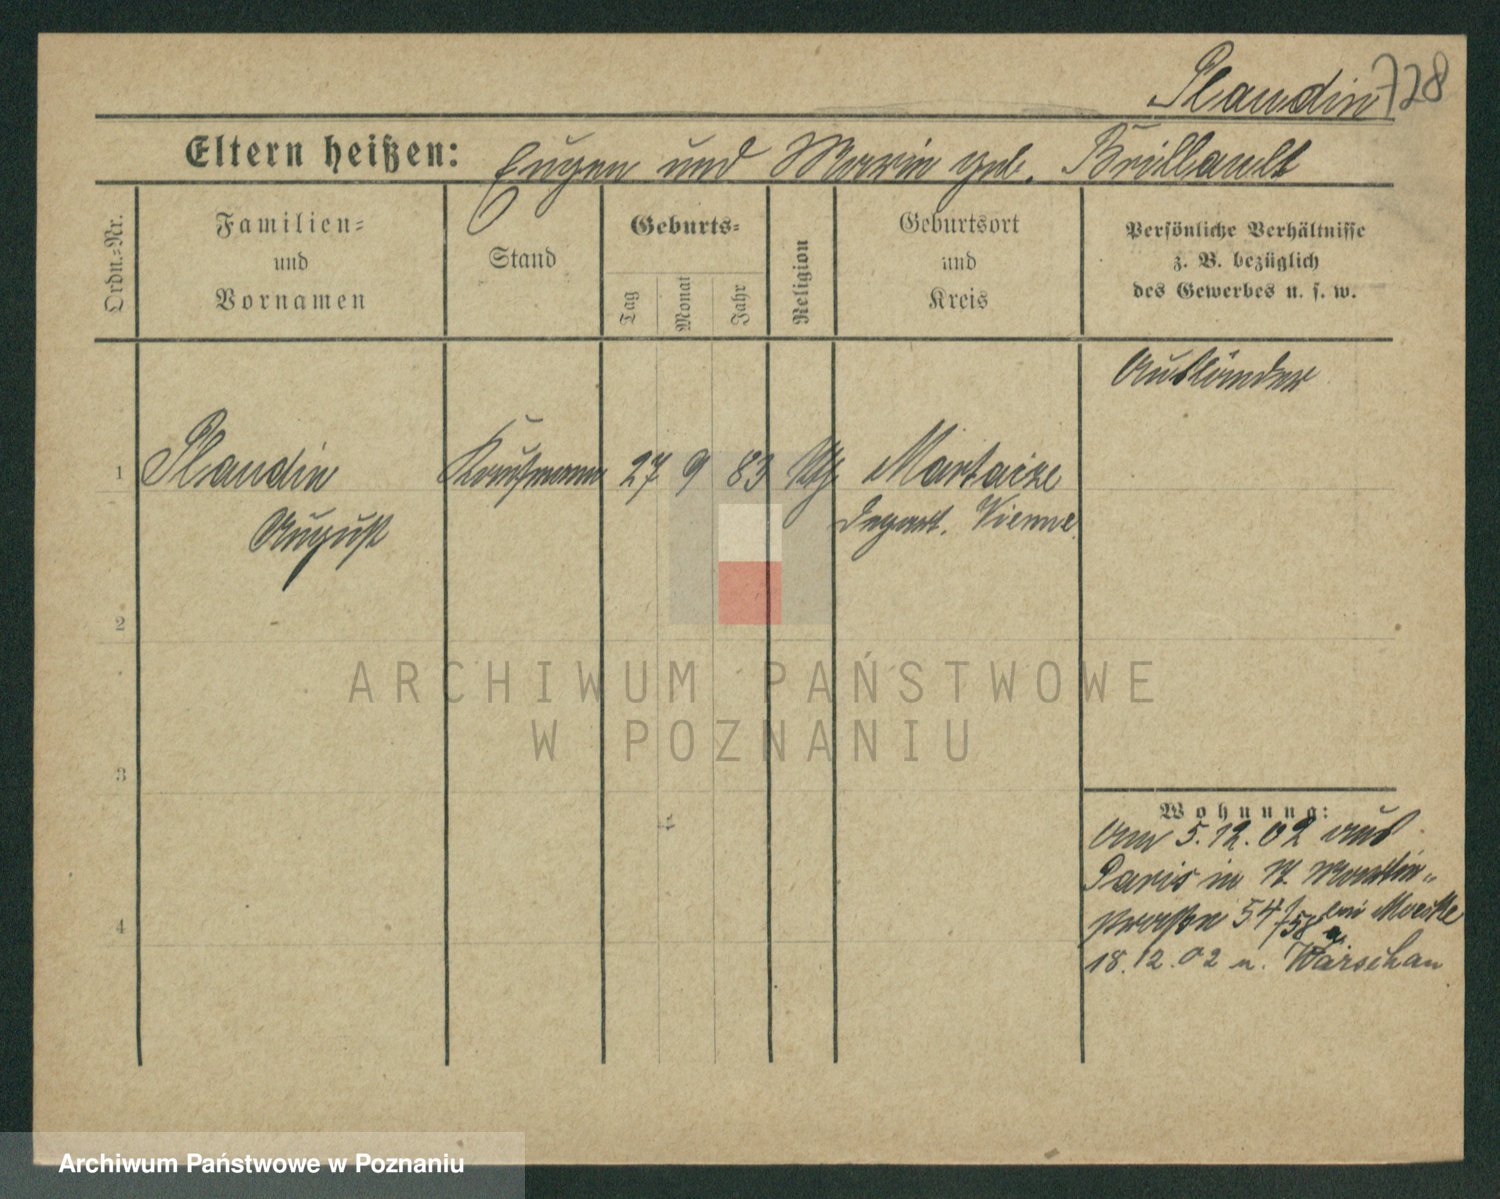 Plaudin 728
Eltern heißen: Eugen und Marie geb. Brillault
Ordn.-Nr.
Familien-
und
Vornamen
Stand
Geburts-
Tag
Monat
Jahr
Religion
Geburtsort
und
Kreis
Persönliche Verhältnisse
z. B. bezüglich
des Gewerbes u. s. w.
Ausländer
1 Plaudin Kaufmann 27 9 83 Martaize
August Depart. Vienne.
2
3
4
ARCHIWUM PAŃSTWOWE
W POZNANIU
Wohnung:
Am 5.12.02 aus
Paris in St Martin-
straße 54/58 bei
18.12.02 n. Warschau
Archiwum Państwowe w Poznaniu